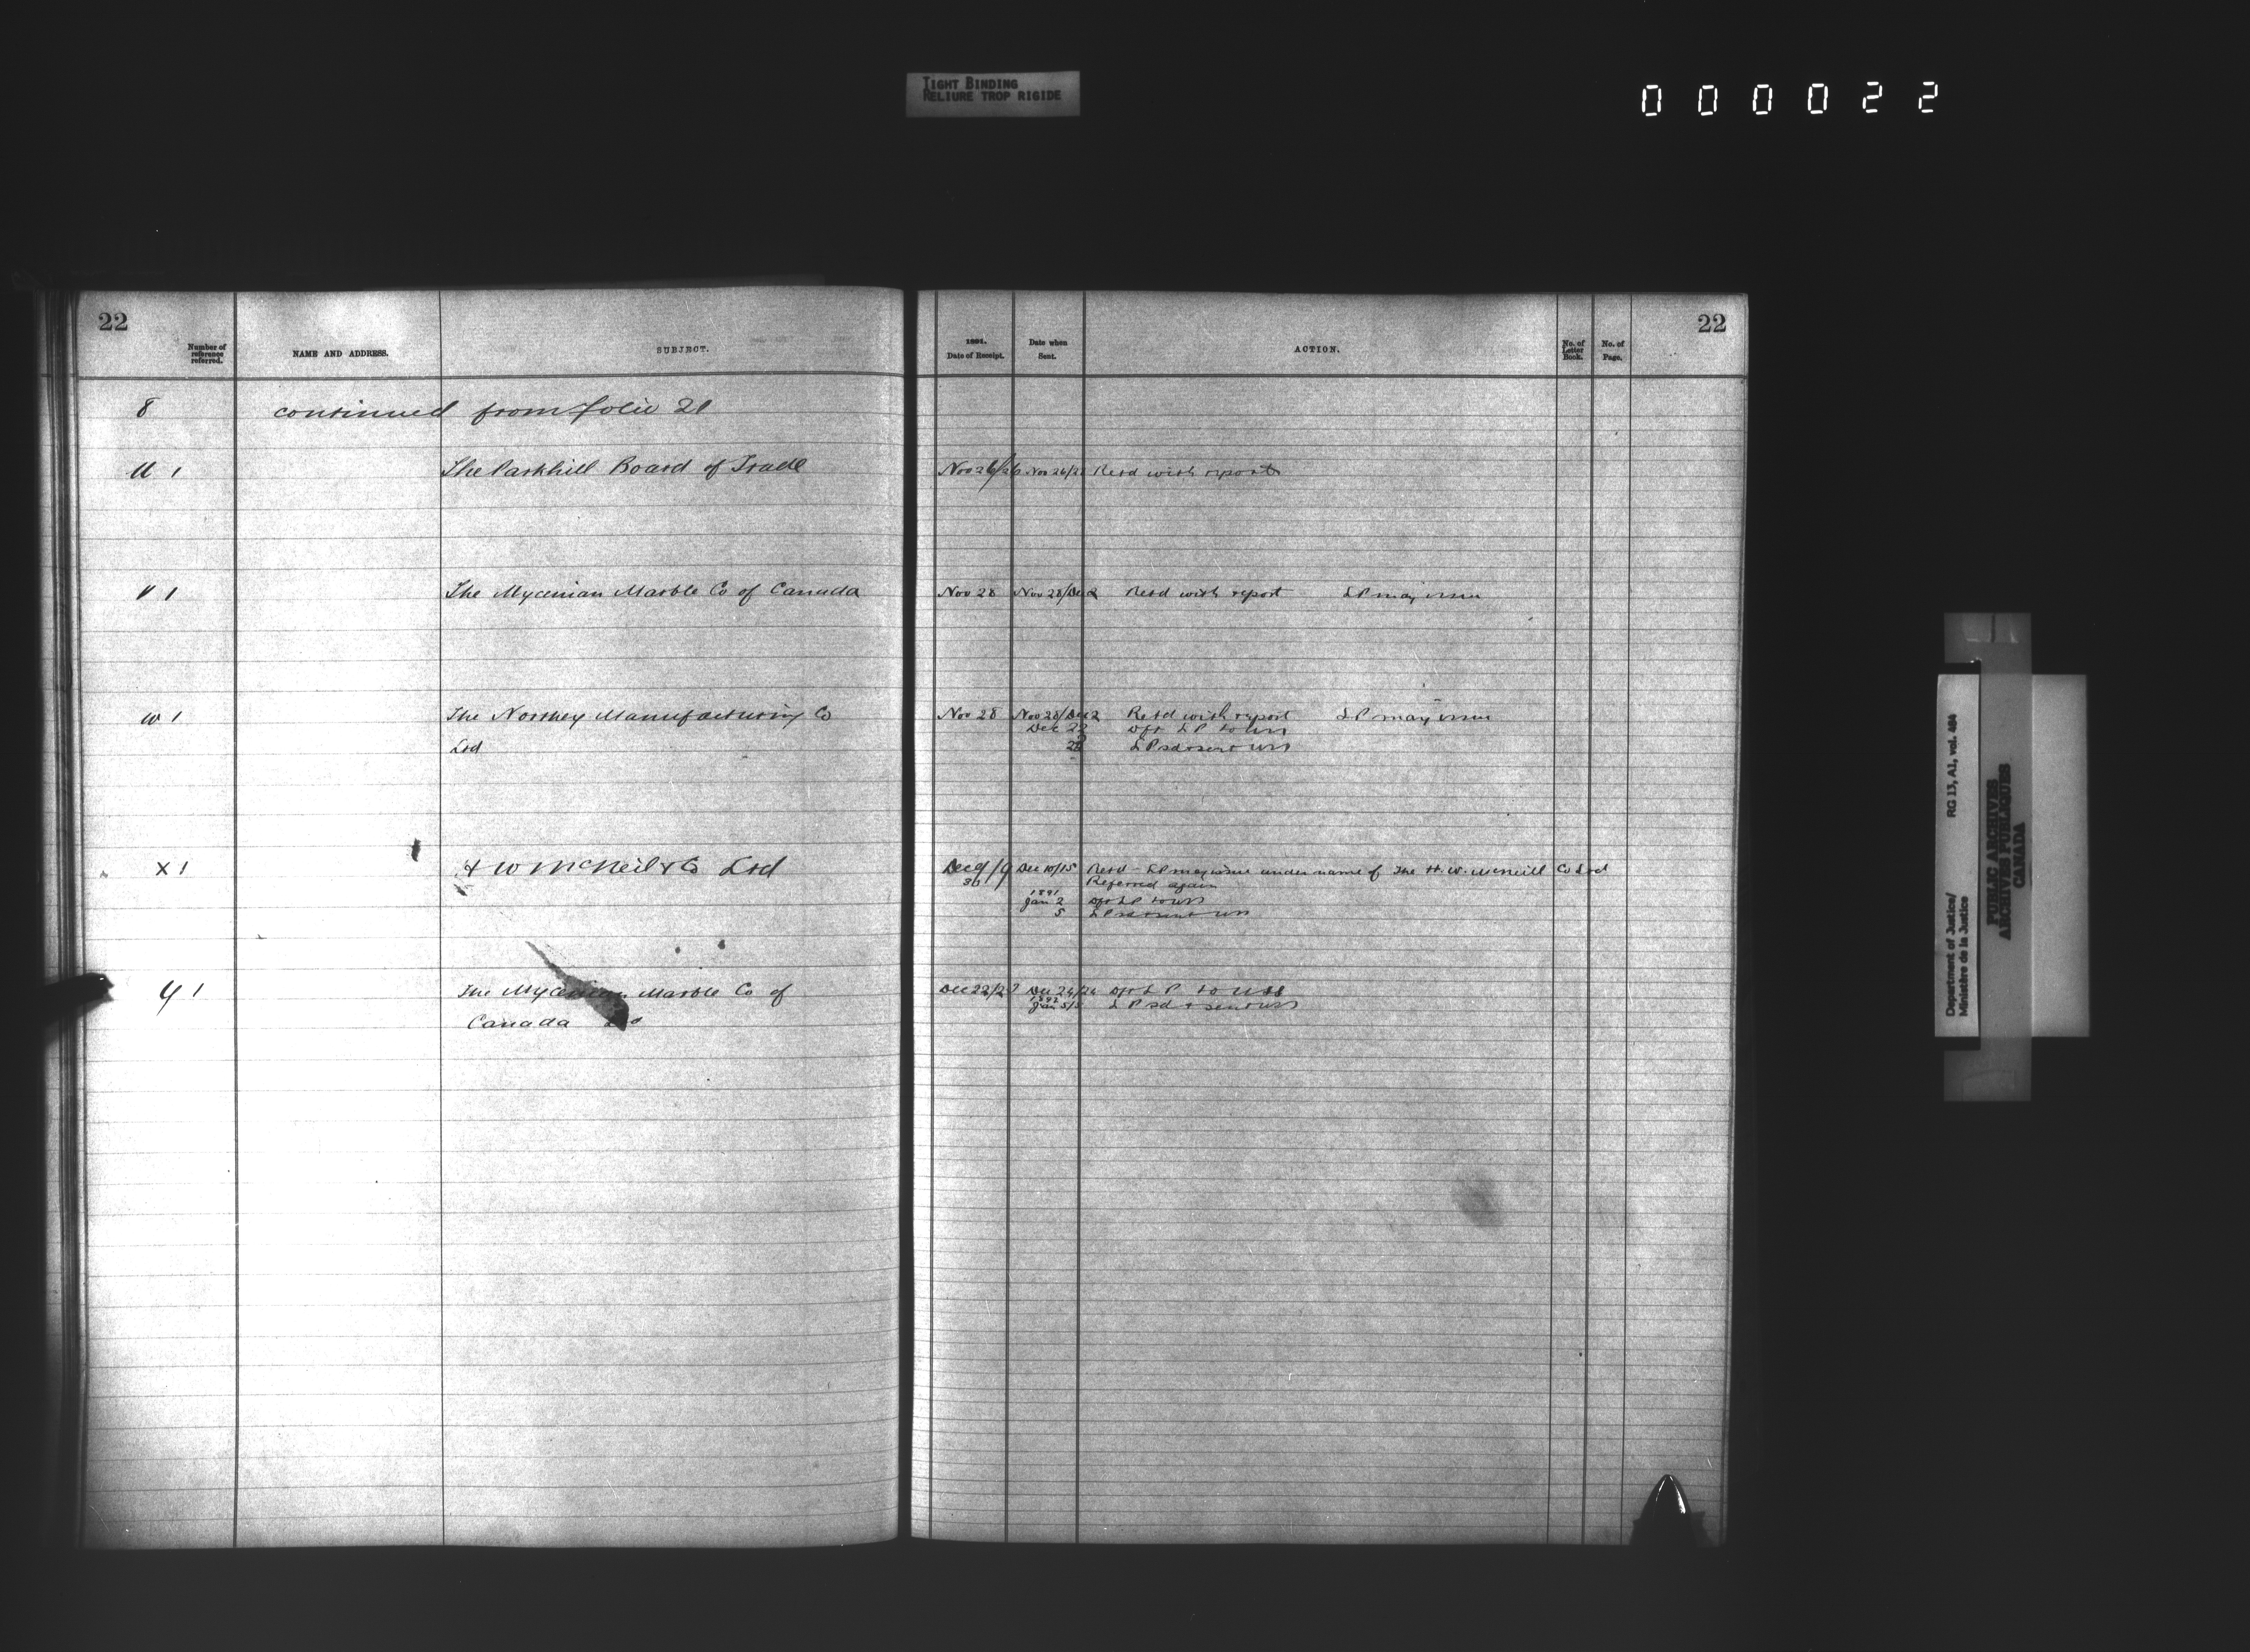 TIGHT BINDING
RELIURE TROP RIGIDE
000022
22
Number of reference referred.
NAME AND ADDRESS.
SUBJECT.
1891.
Date of Receipt.
Date when Sent.
ACTION.
No. of Letter Book.
No. of Page.
22
8 continued from folio 21
U 1 The Parkhill Board of Trade Nov 26/26 Nov 26/28 Retd with report
V 1 The Mycenian Marble Co of Canada Nov 28 Nov 28/Dec 2 Retd with report LP may issue
W 1 The Northey Manufacturing Co Nov 28 Nov 28/Dec 2 Retd with report LP may issue
Ltd Dec 22 Dft LP to USS
28 LP sd & sent USS
X 1 H W McNeil & Co Ltd Dec 9/9 Dec 10/15 Retd LP may issue under name of The H. W. McNeill Co Ltd
30 Referred again
1891
Jan 2 Dft LP to USS
5 LP sd & sent USS
Y 1 The Mycenian Marble Co of Dec 22/29 Dec 24/26 Dft LP to USS
1892
Canada Ltd Jan 5/5 LP sd & sent USS
Department of Justice/ RG 13, A1, vol. 484
Ministère de la Justice
PUBLIC ARCHIVES
ARCHIVES PUBLIQUES
CANADA